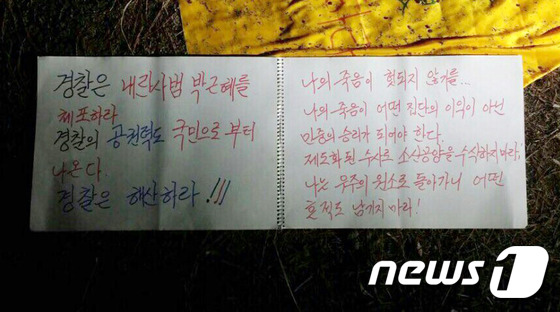 경찰은 내란사범 박근혜를
체포하라
경찰의 공권력도 국민으로 부터
나온다
경찰은 해산하라 !!!
나의 죽음이 헛되지 않기를...
나의 죽음이 어떤 집단의 이익이 아닌
민중의 승리가 되어야 한다.
제도화된 수사로 소신공양을 수식하지 마라,
나는 우주의 원소로 돌아가니 어떤
흔적도 남기지 마라!
news1